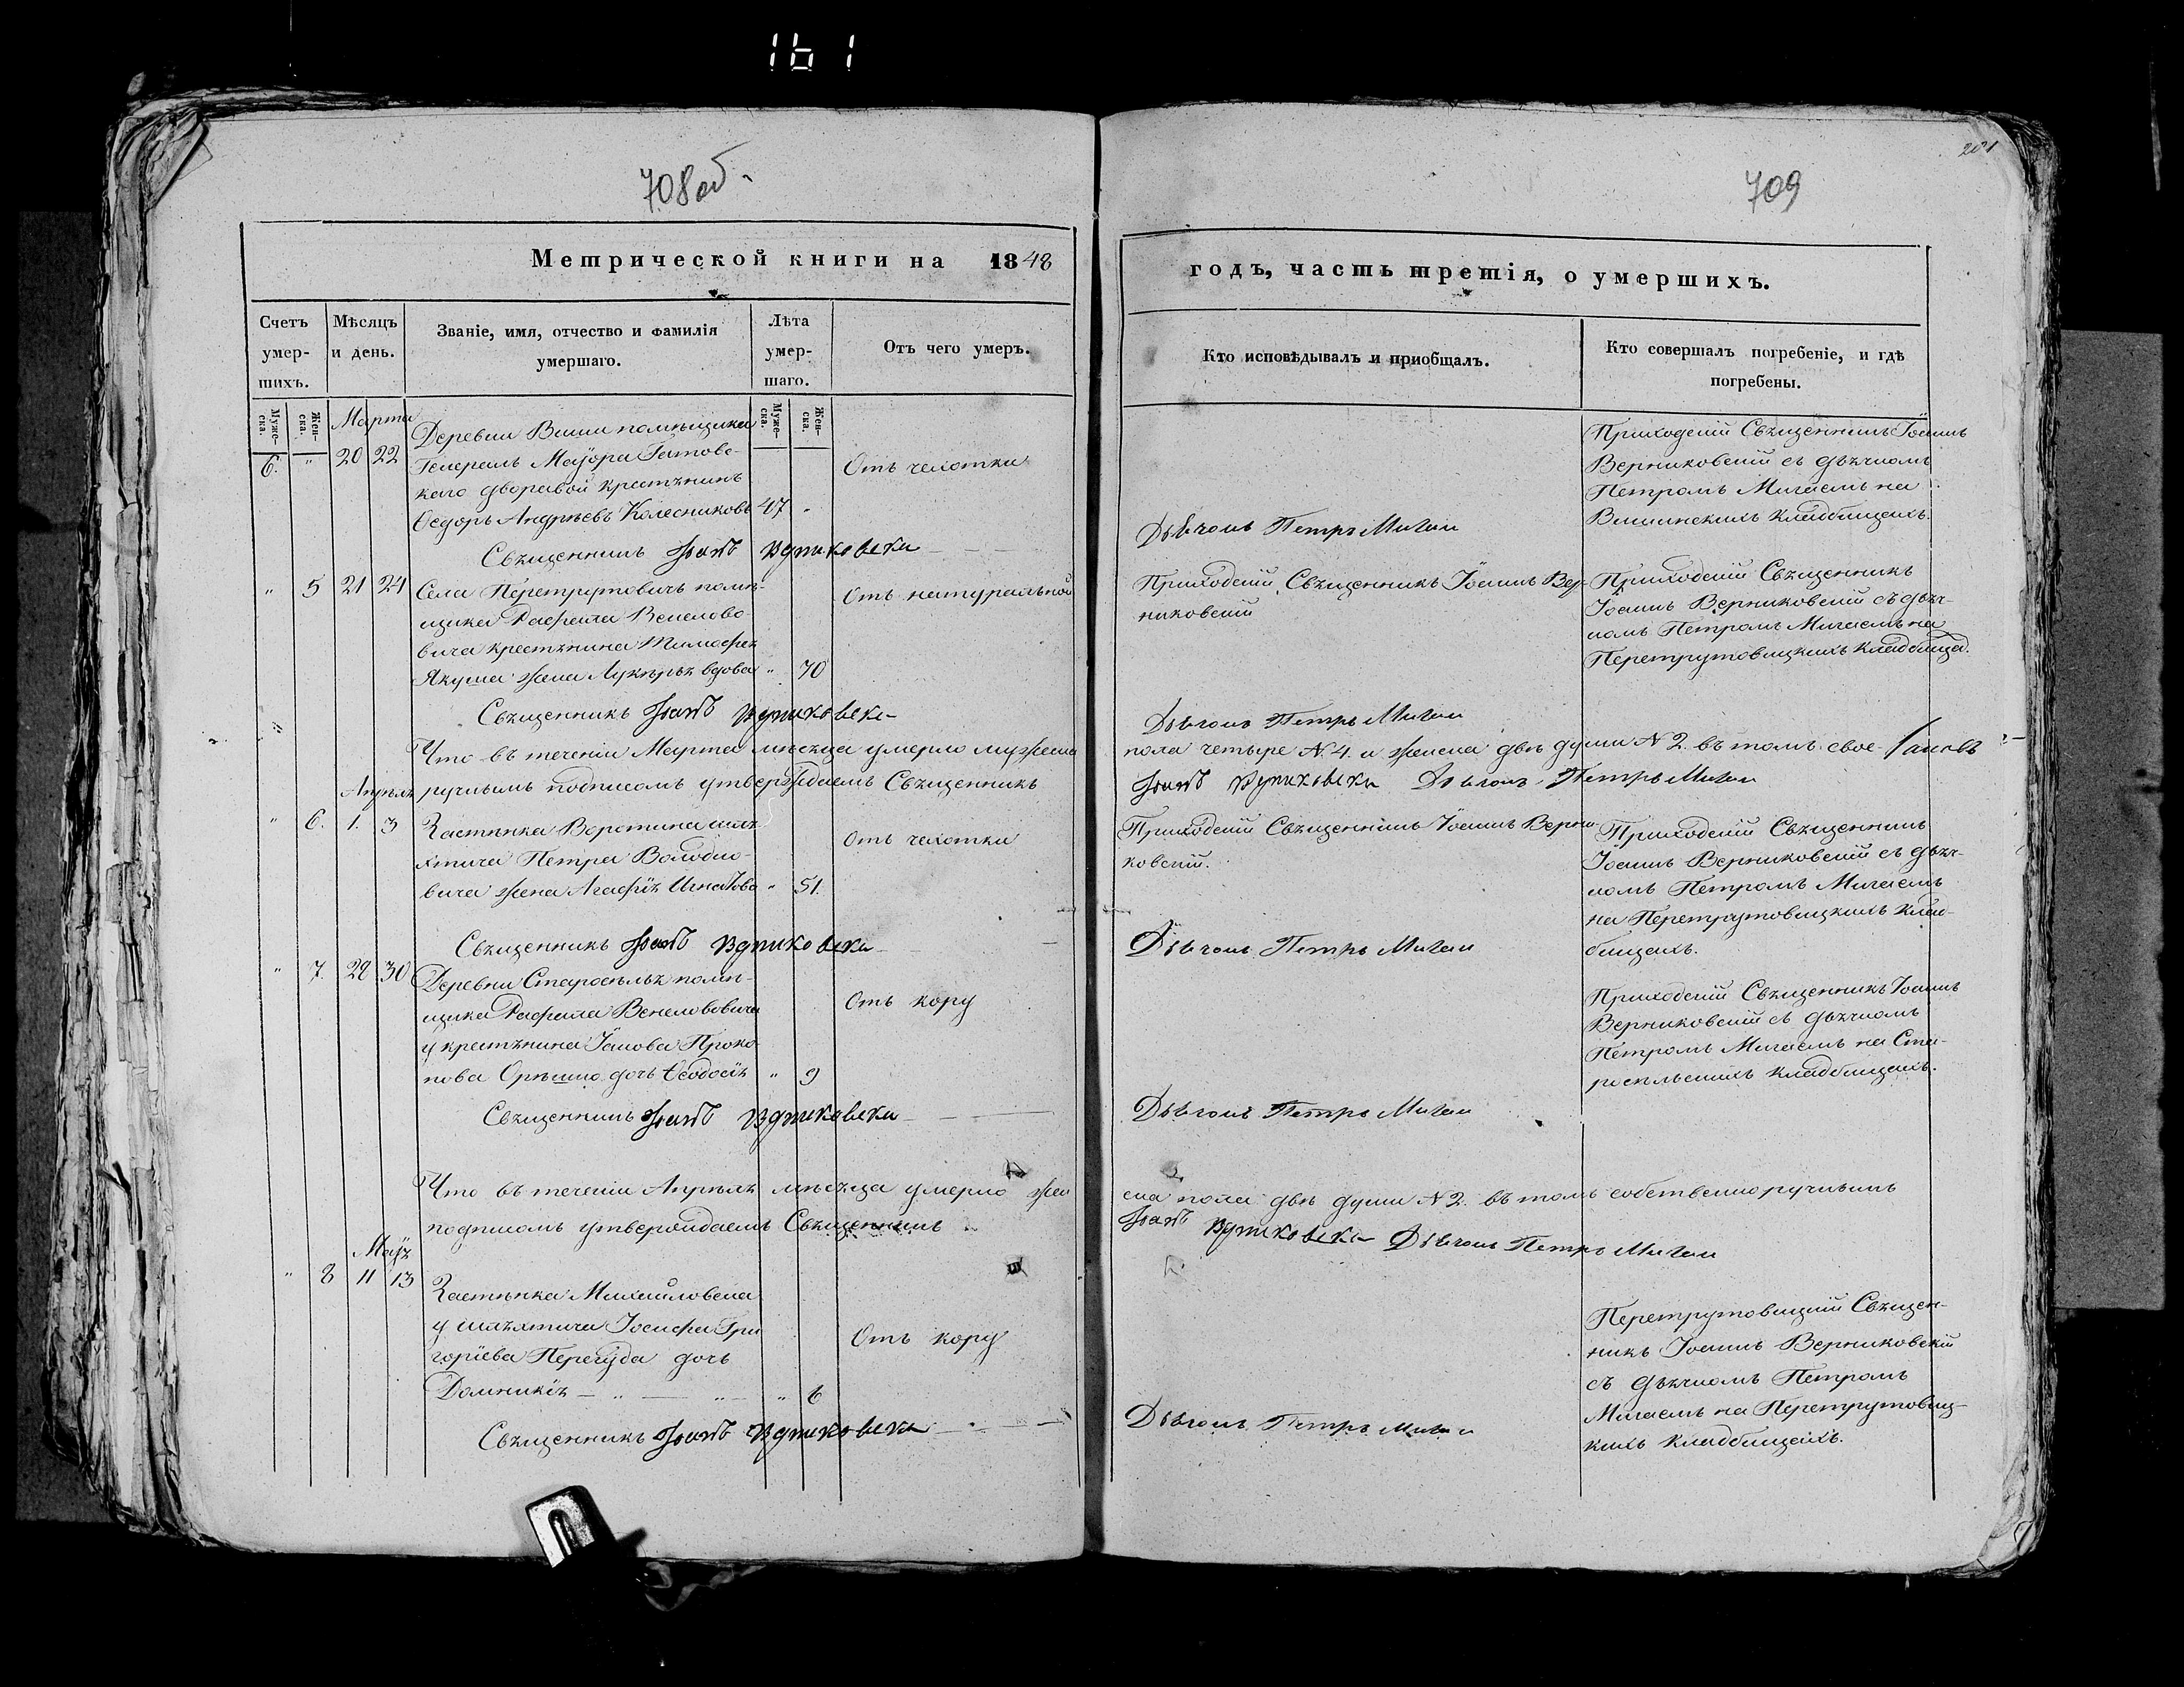 161
708 об.
709
201
Метрической книги на 1848
годъ, часть третія, о умершихъ.
Счетъ умер-шихъ.
Мѣсяцъ и день.
Званіе, имя, отчество и фамилія умершаго.
Лѣта умер-шаго.
Отъ чего умеръ.
Кто исповѣдывалъ и приобщалъ.
Кто совершалъ погребеніе, и гдѣ погребены.
Муже-ска.
Жен-ска.
Муже-ска.
Жен-ска.
Марта
6. " 20 22
Деревни Виши помѣщика
Генералъ Маіора Гатовс-
каго дворовой крестянинъ
Ѳедоръ Андрѣевъ Колесниковъ 47 "
Отъ чахотки
Приходскій Священникъ Іоаннъ
Верниковскій съ дьячкомъ
Петромъ Мигаемъ на
Вишинскихъ кладбищахъ.
Священникъ Іоаннъ Верниковски
Дьячокъ Петръ Мигаи
" 5 21 24
Села Перетрутовичъ помѣ-
щика Рафаила
вича крестянина Тимофея
Якуша жена Лукеря вдова " 70
Отъ натуральной
Приходскій Священникъ Іоаннъ Вер-
никовскій
Приходскій Священникъ
Іоаннъ Верниковскій съ дьяч-
комъ Петромъ Мигаемъ на
Перетрутовицкихъ кладбища.
Священникъ Іоаннъ Верниковски
Дьячокъ Петръ Мигаи
Что въ теченіи Марта мѣсяца умерло мужеска
пола четыре N. 4. и женска двѣ души N 2. въ томъ свое-
ручнымъ подписомъ утверждаемъ Священникъ
Іоаннъ Верниковски Дьячокъ Петръ Мигаи
Апрѣля
" 6. 1. 3
Застѣнка Воротина шля-
хтича Петра
вича жена Агафія " 51.
Отъ чахотки
Приходскій Священникъ Іоаннъ Верни-
ковскій.
Приходскій Священникъ
Іоаннъ Верниковскій съ дьяч-
комъ Петромъ Мигаемъ
на Перетрутовицкихъ клад-
бищахъ.
Священникъ Іоаннъ Верниковски
Дьячокъ Петръ Мигаи
" 7. 28 30
Деревни Староселья помѣ-
щика Рафаила
у крестянина Іакова Проко-
пова дочь Ѳеодосія " 9
Отъ кору
Приходскій Священникъ Іоаннъ
Верниковскій съ дьячкомъ
Петромъ Мигаемъ на Ста-
росельскихъ кладбищахъ.
Священникъ Іоаннъ Верниковски
Дьячокъ Петръ Мигаи
Что въ теченіи Апрѣля мѣсяца умерло жен
ска пола двѣ души N 2. въ томъ собственноручнымъ
подписомъ утверждаемъ Священникъ
Іоаннъ Верниковски Дьячокъ Петръ Мигаи
Маія
" 8 11 13
Застѣнка Михайловска
у шляхтича Іосифа Гри
горіева Перегуда дочь
Домникія " 6
Отъ кору
Перетрутовицкій Священ-
никъ Іоаннъ Верниковскій
съ дьячкомъ Петромъ
Мигаемъ на Перетрутовиц-
кихъ кладбищахъ.
Священникъ Іоаннъ Верниковски
Дьячокъ Петръ Мигаи